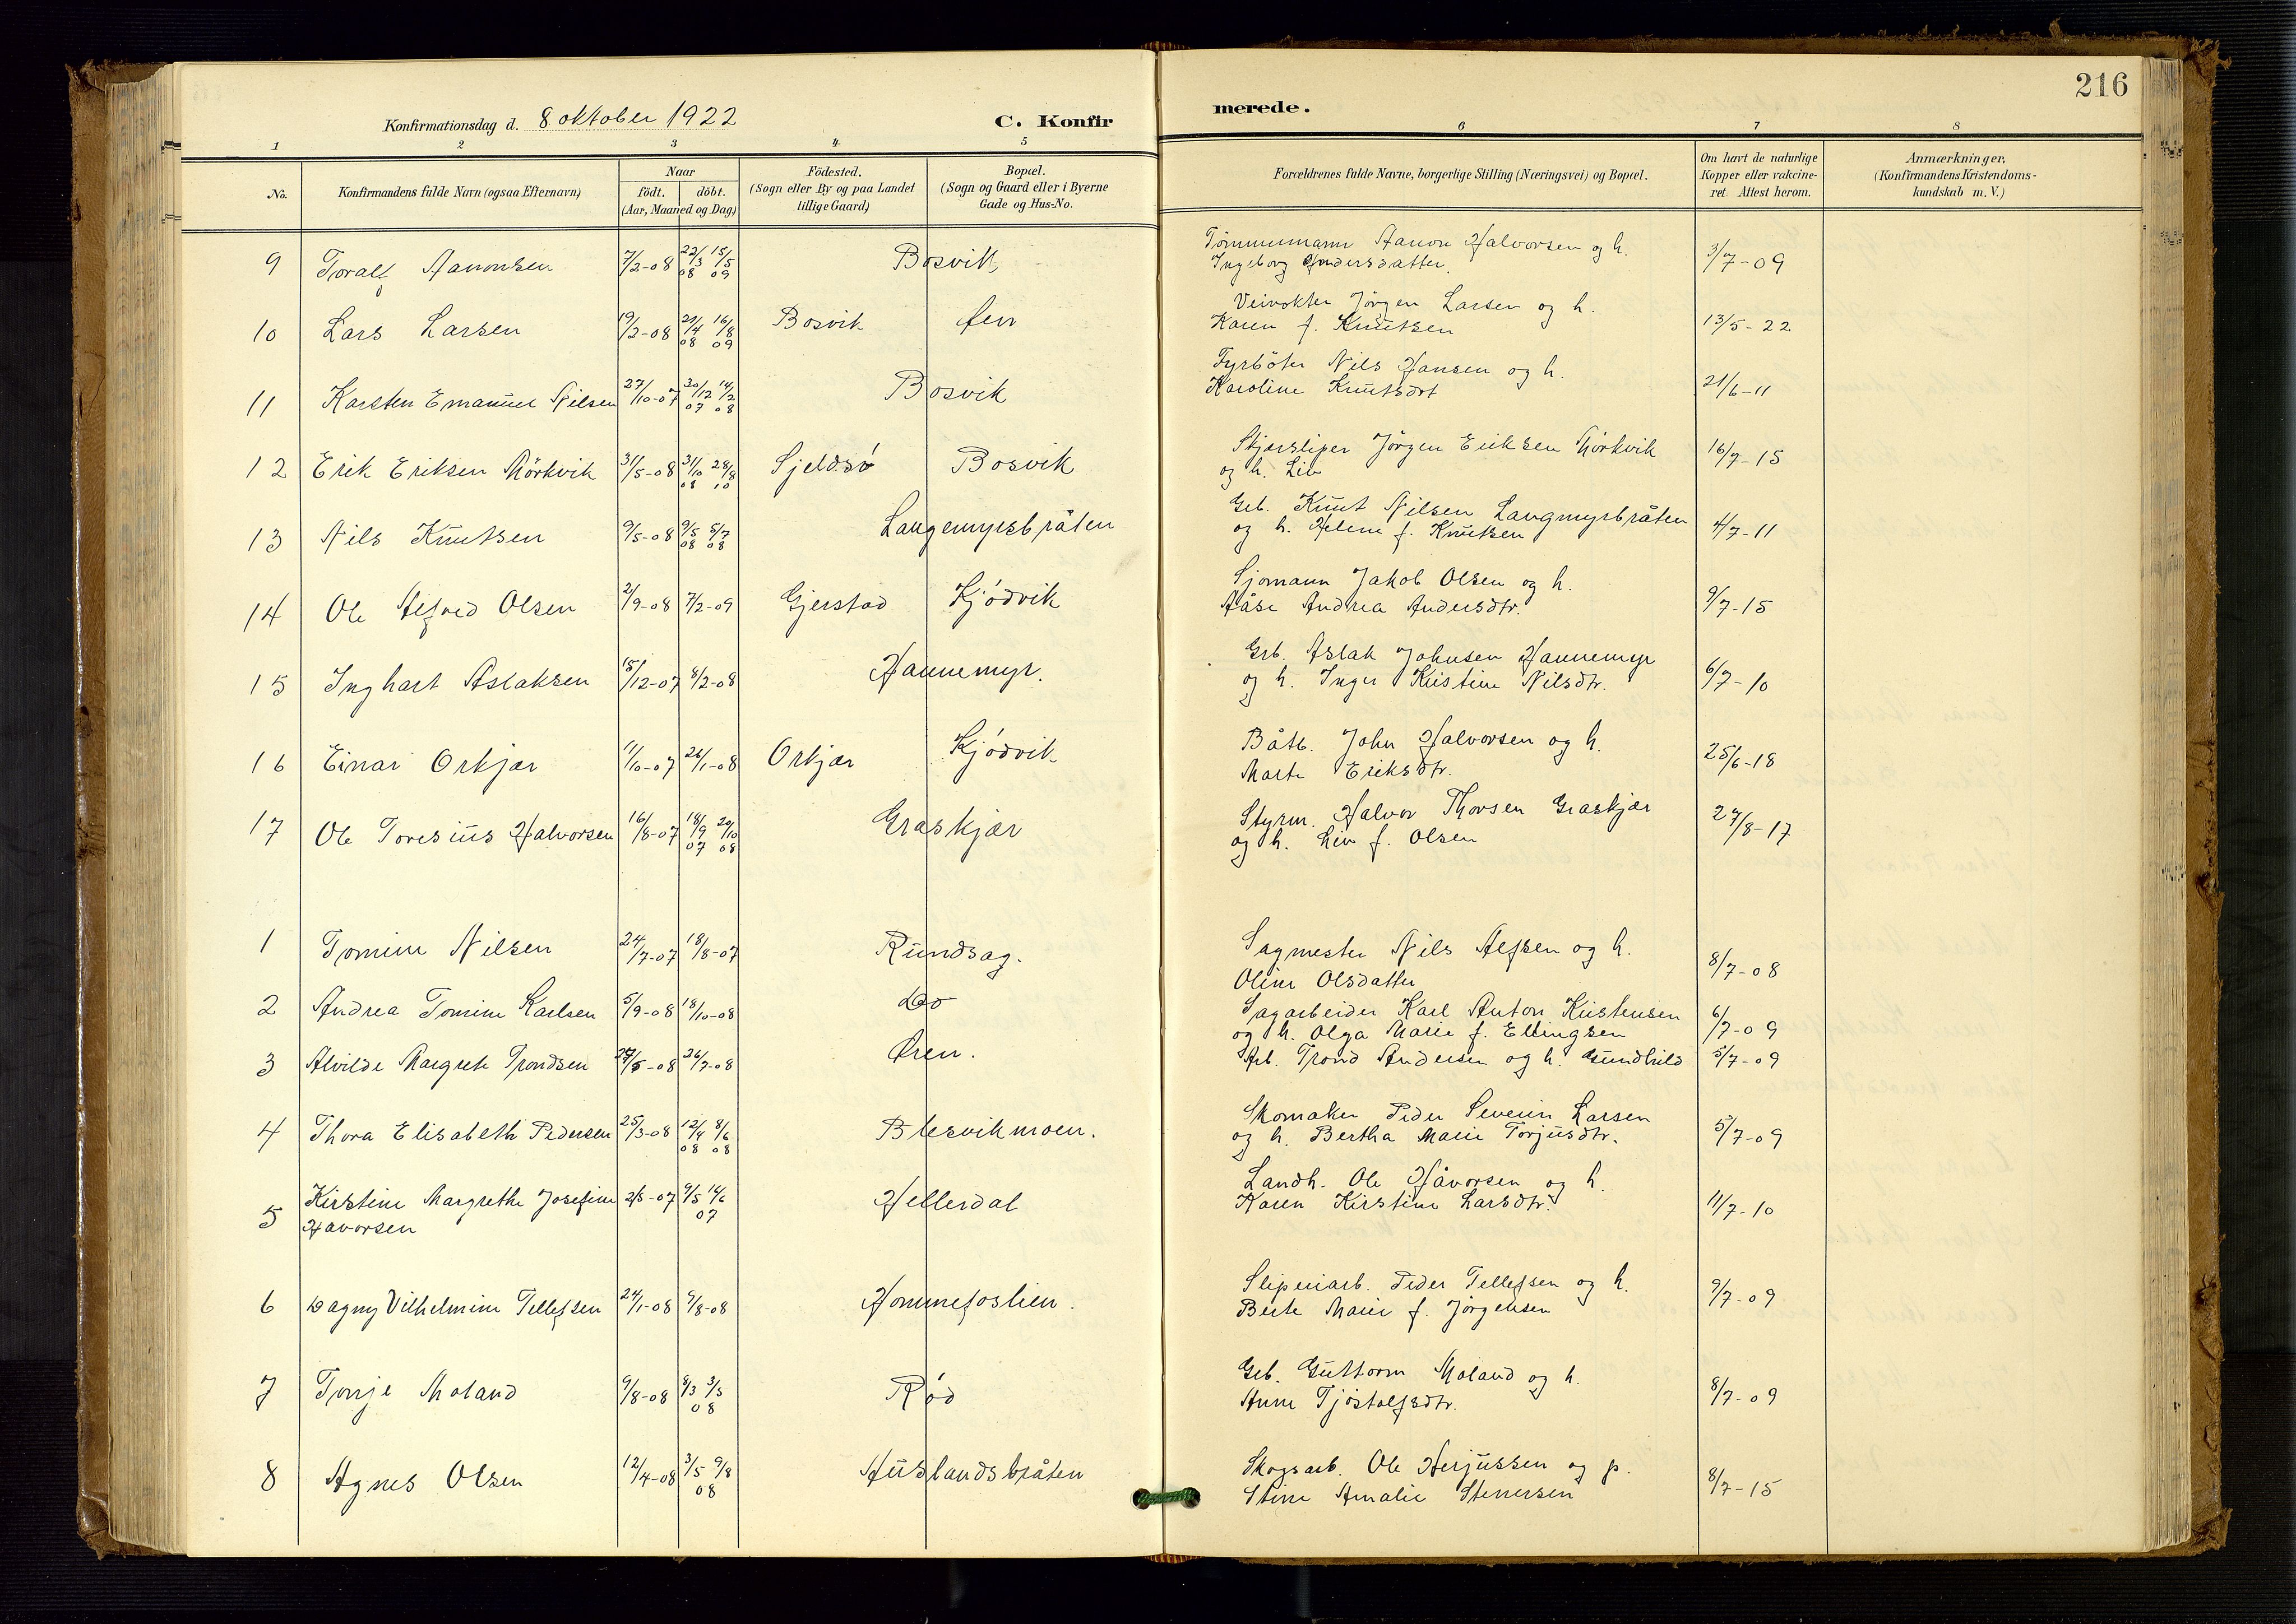 216
Konfirmationsdag d. 8 oktober 1922
C. Konfirmerede.
1 2 3 4 5 6 7 8
No.
Konfirmandens fulde Navn (ogsaa Efternavn)
Naar
födt. döbt.
(Aar, Maaned og Dag)
Födested.
(Sogn eller By og paa Landet
tillige Gaard)
Bopæl.
(Sogn og Gaard eller i Byerne
Gade og Hus-No.
Forældrenes fulde Navne, borgerlige Stilling (Næringsvei) og Bopæl.
Om havt de naturlige
Kopper eller vakcine-
ret. Attest herom.
Anmærkninger.
(Konfirmandens Kristendoms-
kundskab m. V.)
9 Toralf Aanonsen 7/2-08 22/3 08 15/5 09 Bosvik
Tömmermann Aanon Halvorsen og h.
Ingeborg Andersdatter. 3/7-09
10 Lars Larsen 19/2-08 21/4 08 16/8 09 Bosvik fen
Veivokter Jörgen Larsen og h.
Karen f. Knutsen 13/5-22
11 Karsten Emanuel Nilsen 27/10-07 30/12 07 14/2 08 Bosvik
Fyrböter Nils Hansen og h.
Karoline Knutsdrt 21/6-11
12 Erik Eriksen Mörkvik 31/5-08 31/10 08 28/8 10 Sjeldsö Bosvik
Skjærsliper Jörgen Eriksen Mörkvik
og h. Liv 16/7-15
13 Nils Knutsen 9/5-08 9/5 08 5/7 08 Langemyrsbråten
Grb. Knut Nilsen Langmyrbråten
og h. Helene f. Knutsen 4/7-11
14 Ole Alfred Olsen 2/9-08 7/2-09 Gjerstad Kjödvik
Sjömann Jakob Olsen og h.
Aåse Andrea Andersdtr. 9/7-15
15 Inghart Aslaksen 15/12-07 8/2-08 Hannemyr.
Grb. Aslak Johnsen Hannemyr
og h. Inger Kristine Nilsdtr. 6/7-10
16 Einar Orkjær 11/10-07 26/1-08 Orkjær Kjödvik
Båtb. John Halvorsen og h.
Marte Eriksdtr. 25/6-18
17 Ole Toresius Halvorsen 16/8-07 18/9 07 20/10 08 Graskjær
Styrm. Halvor Thorsen Graskjær
og h. Liv f. Olsen 27/8-17
1 Tomine Nilsen 24/7-07 18/8-07 Rundsag.
Sagmester Nils Alfsen og h.
Oline Olsdatter 8/7-08
2 Andrea Tomine Karlsen 5/9-08 18/10-08 Do
Sagarbeider Karl Anton Kristensen
og h. Olga Marie f. Ellingsen 6/7-09
3 Alvilde Margrete Trondsen /5-08 26/7-08 Øren.
Arb. Trond Andersen og h. Gundhild 5/7-09
4 Thora Elisabeth Pedersen 25/3-08 12/4 08 8/6 08 Blesvikmoen.
Skomaker Peder Severin Larsen
og h. Bertha Marie Torjusdtr. 5/7-09
5 Kirstine Margrethe Josefine 2/3-07 9/5 16/6 07 Hellerdal
Havorsen
Landh. Ole Håvorsen og h.
Karen Kirstine Larsdtr. 11/7-10
6 Dagny Vilhelmine Tellefsen 24/1-08 9/8-08 Hommefoslien.
Sliperiarb. Peder Tellefsen og h.
Berte Marie f. Jörgensen 9/7-09
7 Tonje Moland 9/8-08 8/3 3/5 08 Rød
Grb. Guttorm Moland og h.
Anne Tjöstolfsdtr. 8/7-09
8 Agnes Olsen 12/4-08 3/5 9/8 08 Auslandsbråten
Skogsarb. Ole Herjussen og p.
Stine Amalie Stenersen 8/7-15